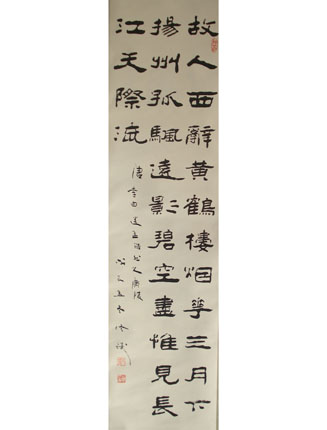 故人西辭黄鶴樓烟華三月下
揚州孤颿遠影碧空盡惟見長
江天際流
唐李白送孟浩然之廣陵